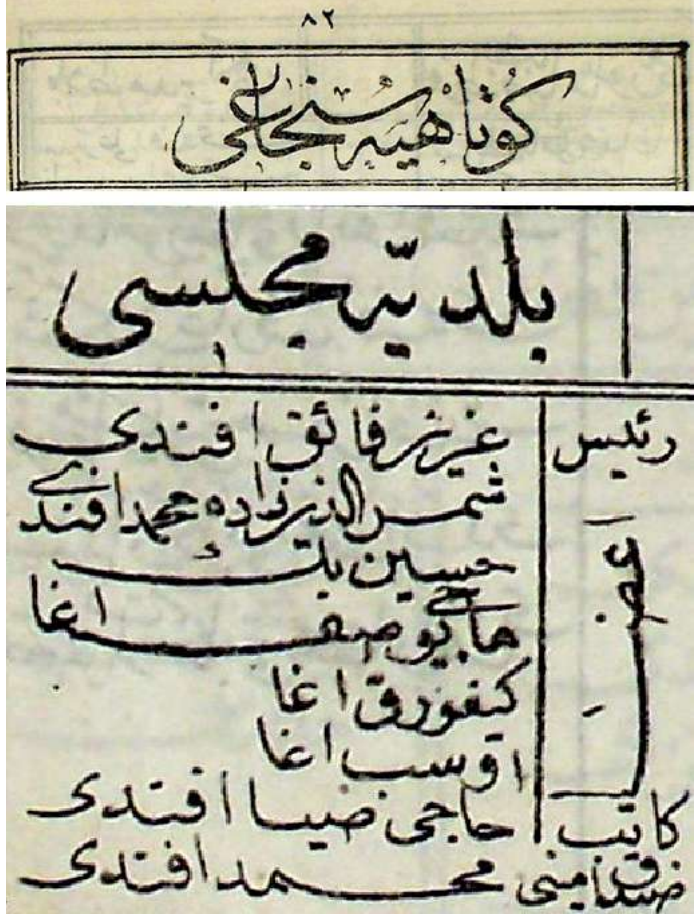 ٨٢
كوتاهیه سنجاغی
بلدیه مجلسی
رئیس عزیز فائق افندی
اعضا شمس الدین زاده محمد افندی
حسین بك
حاجی یوصف اغا
كیفورق اغا
اوسب اغا
كاتب حاجی ضیا افندی
صندق امینی محمد افندی